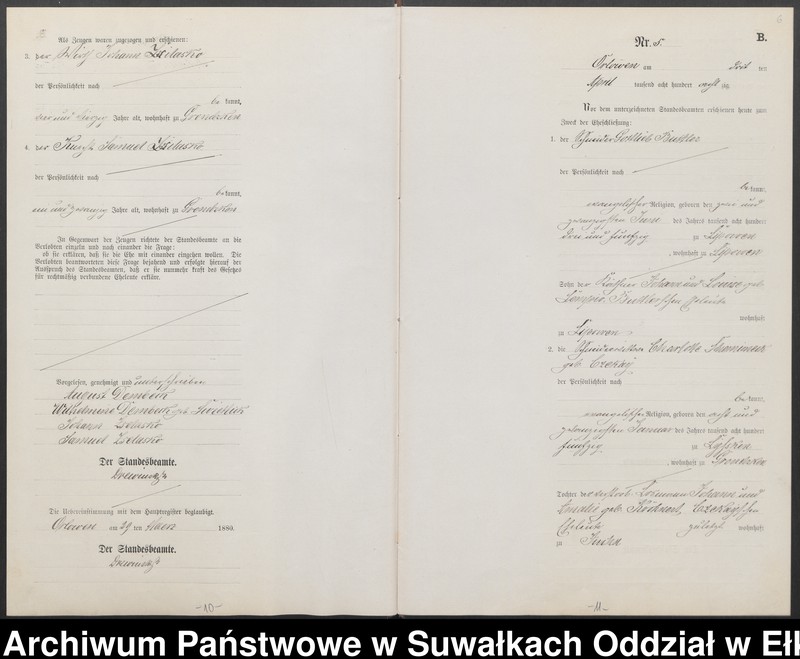 Als Zeugen waren zugezogen und erschienen:
3. der Wirth Johann Zielasko
der Persönlichkeit nach
bekannt,
und vierzig Jahre alt, wohnhaft zu Grondzken
4. der Samuel Zielasko
der Persönlichkeit nach
bekannt,
ein und zwanzig Jahre alt, wohnhaft zu Grondzken
In Gegenwart der Zeugen richtete der Standesbeamte an die
Verlobten einzeln und nach einander die Frage:
ob sie erklären, daß sie die Ehe mit einander eingehen wollen. Die
Verlobten beantworteten diese Frage bejahend und erfolgte hierauf der
Ausspruch des Standesbeamten, daß er sie nunmehr kraft des Gesetzes
für rechtmäßig verbundene Eheleute erkläre.
Vorgelesen, genehmigt und unterschrieben
August Dembeck
Wilhelmine Dembeck geb.
Johann Zielasko
Samuel Zielasko
Der Standesbeamte.
Die Uebereinstimmung mit dem Hauptregister beglaubigt.
Orlowen am 29 ten März 1880.
Der Standesbeamte.
-10-
6
B.
Nr. 5.
Orlowen am ten
April tausend acht hundert acht zig
Vor dem unterzeichneten Standesbeamten erschienen heute zum
Zweck der Eheschließung:
1. der Schneider Gottlieb
der Persönlichkeit nach
bekannt,
evangelischer Religion, geboren den zwei und
zwanzigsten Juni des Jahres tausend acht hundert
drei und fünfzig zu Lipowen
, wohnhaft zu Lipowen
Sohn der Johann und Louise geb.
Eheleute
wohnhaft
zu Lipowen
2. die Charlotte
geb. Czekay
der Persönlichkeit nach
bekannt,
evangelischer Religion, geboren den acht und
zwanzigsten Januar des Jahres tausend acht hundert
fünfzig zu
, wohnhaft zu Grondzken
Tochter der Johann und
Amalie geb. Czekayschen
Eheleute zuletzt wohnhaft
zu
-11-
Archiwum Państwowe w Suwałkach Oddział w Ełk